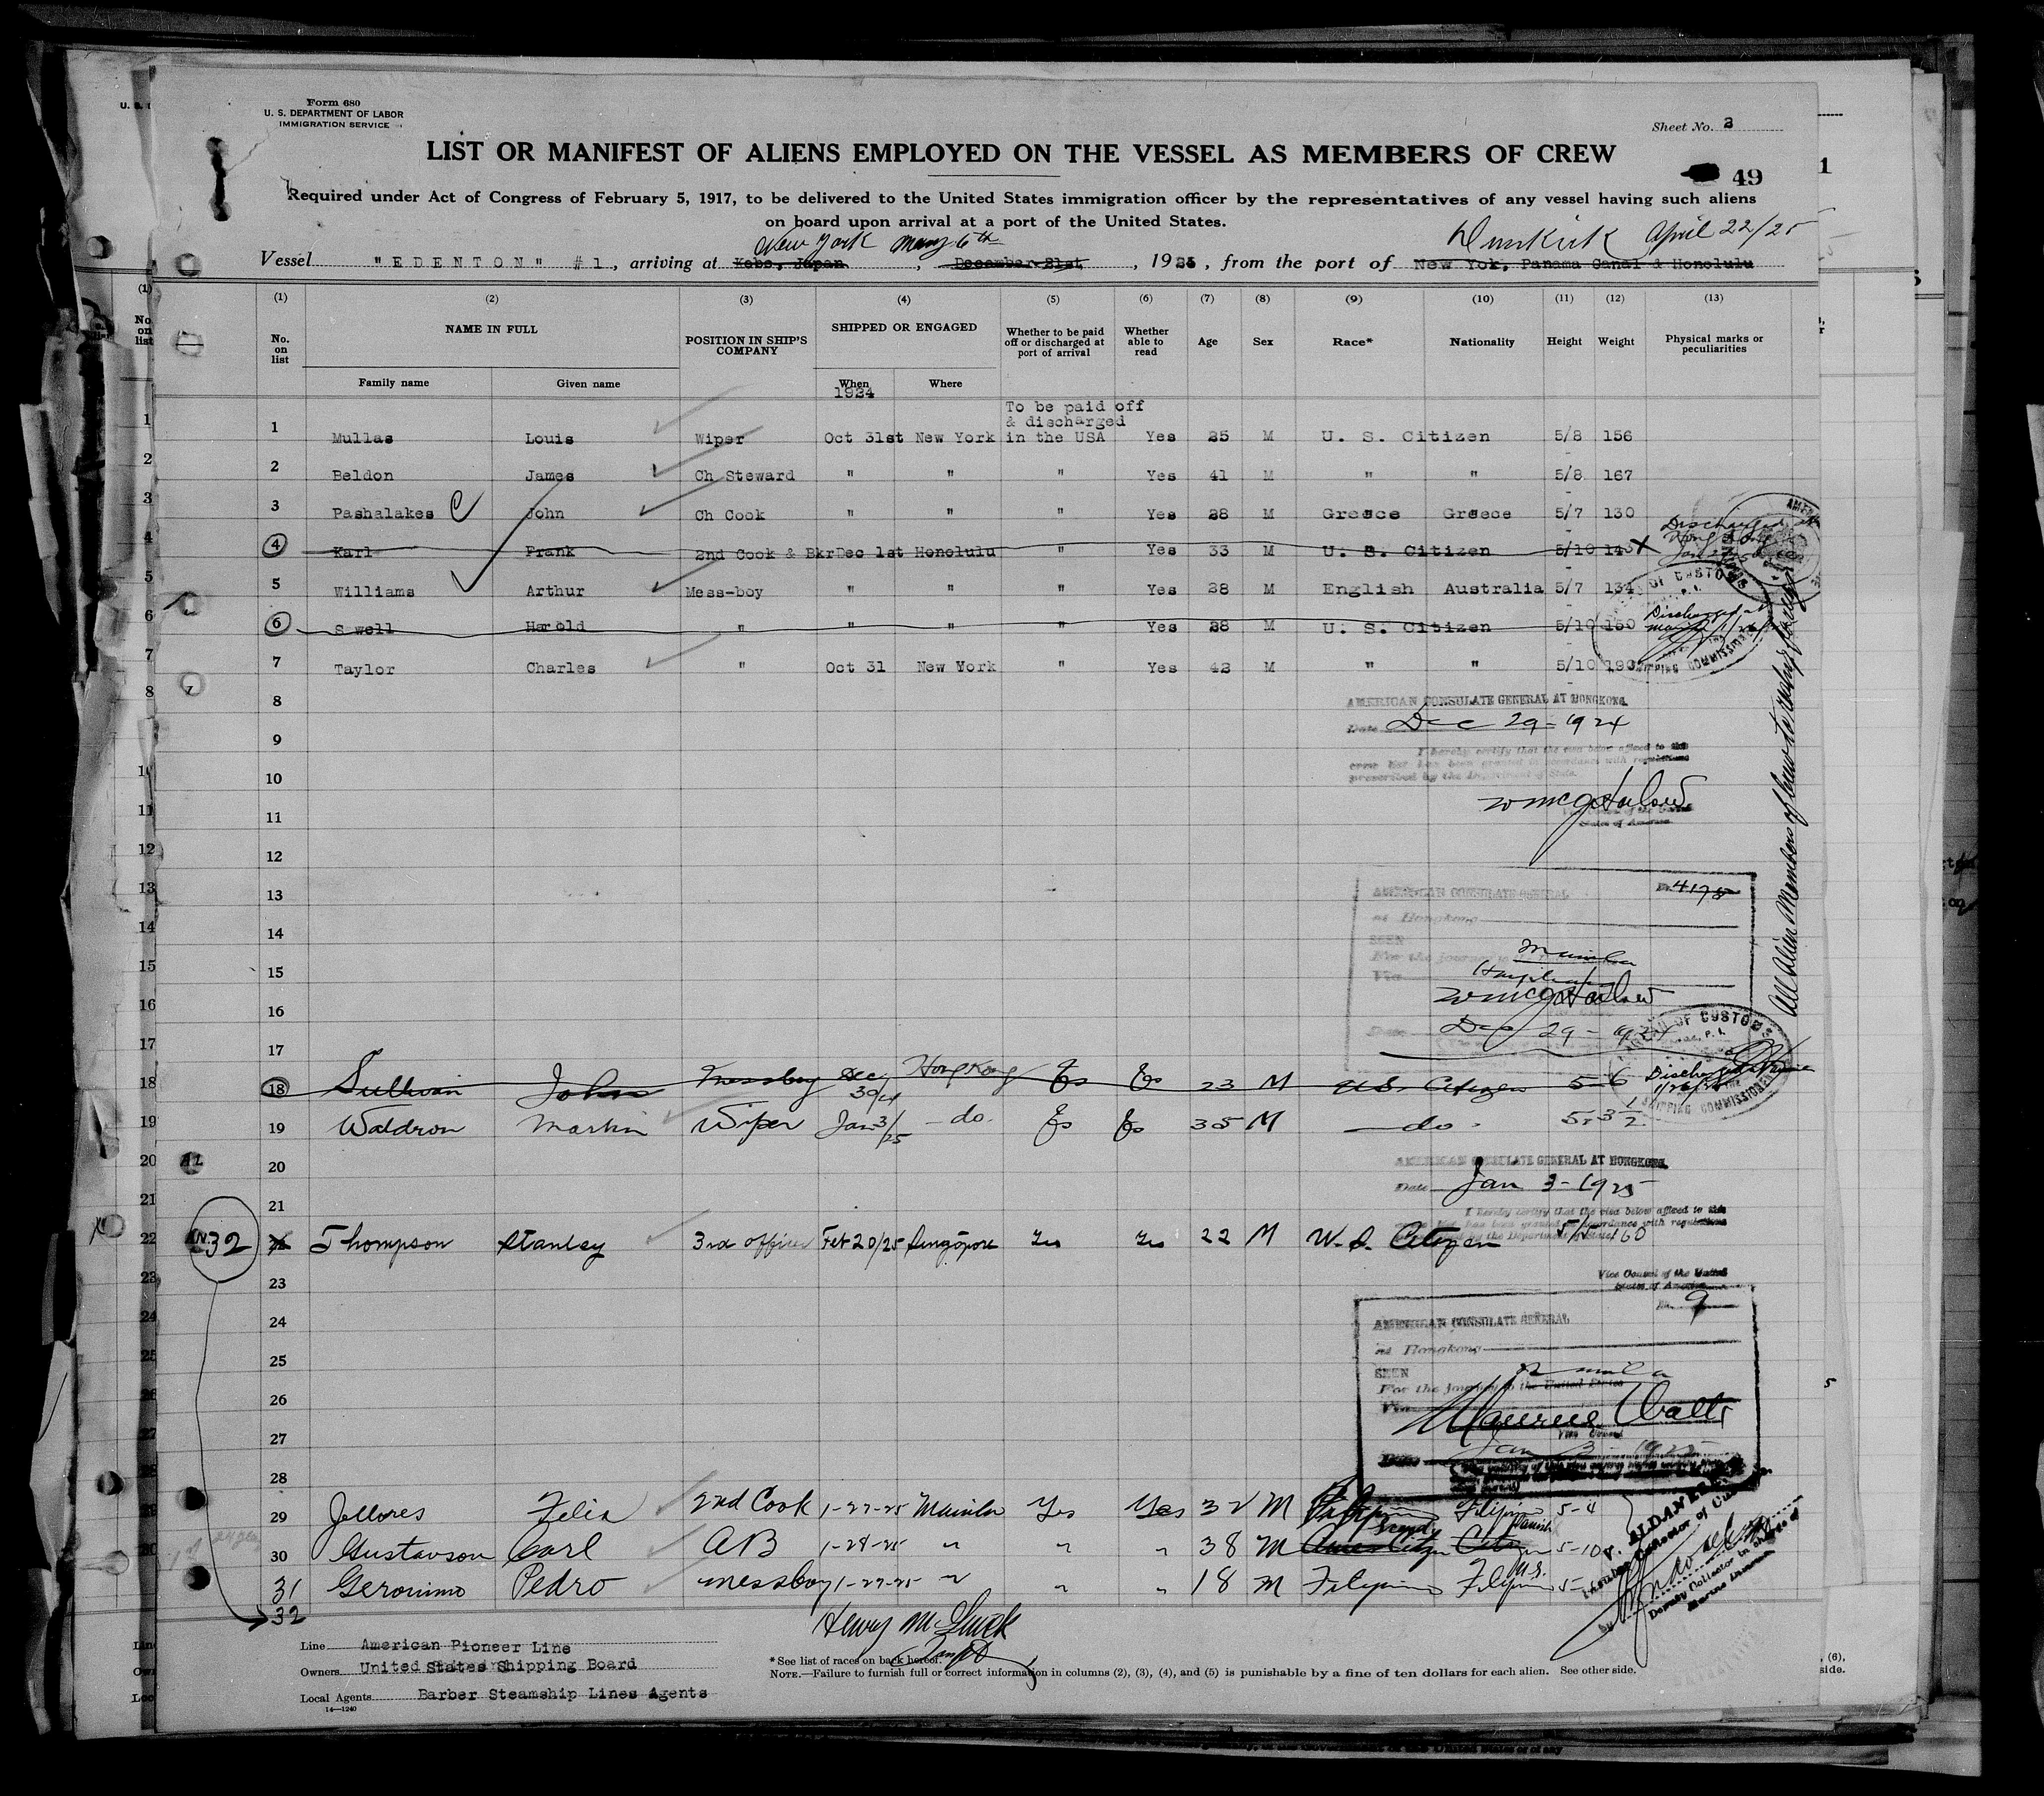 Form 680
U. S. DEPARTMENT OF LABOR
IMMIGRATION SERVICE
Sheet No. 3
LIST OR MANIFEST OF ALIENS EMPLOYED ON THE VESSEL AS MEMBERS OF CREW
49
1
Required under Act of Congress of February 5, 1917, to be delivered to the United States immigration officer by the representatives of any vessel having such aliens
on board upon arrival at a port of the United States.
New York May 6th Dunkirk April 22/25
Vessel "EDENTON" #1, arriving at Kobe, Japan, December 21st, 1925, from the port of New Yok, Panama Canal & Honolulu
(1) (2) (3) (4) (5) (6) (7) (8) (9) (10) (11) (12) (13)
No. on list NAME IN FULL POSITION IN SHIP'S COMPANY SHIPPED OR ENGAGED Whether to be paid off or discharged at port of arrival Whether able to read Age Sex Race* Nationality Height Weight Physical marks or peculiarities
Family name Given name When Where
1924
To be paid off
& discharged
1 Mullas Louis Wiper Oct 31st New York in the USA Yes 25 M U. S. Citizen 5/8 156
2 Beldon James Ch Steward " " " Yes 41 M " " 5/8 167
3 Pashalakes C John Ch Cook " " " Yes 28 M Greece Greece 5/7 130
4 Karl Frank 2nd Cook & Bkr Dec 1st Honolulu " Yes 33 M U. S. Citizen 5/10 143 X Discharged at Hong Kong
5 Williams Arthur Mess-boy " " " Yes 28 M English Australia 5/7 134
6 S well Harold " " " " Yes 28 M U. S. Citizen 5/10 150 Discharged at
7 Taylor Charles " Oct 31 New York " Yes 42 M " " 5/10 190
8 AMERICAN CONSULATE GENERAL AT HONGKONG.
Date Dec 29-1924
9
I hereby certify that the visa below affixed to this
crew list has been granted in accordance with regulations
prescribed by the Department of State.
10
11
States of America
12
13 AMERICAN CONSULATE GENERAL No. 4178
at Hongkong
14
SEEN
For the journey to Manila
15
Via
16
Dec 29-1924
17
18 Sullivan John Messboy Dec 30/24 HongKong Yes Yes 23 M U.S. Citizen 5-6 Discharged
19 Waldron Martin Wiper Jan 3/25 - do. Yes Yes 35 M - do - 5-3 1/2
20 AMERICAN CONSULATE GENERAL AT HONGKONG.
Date Jan 3-1925
21
I hereby certify that the visa below affixed to this
crew list has been granted in accordance with regulations
prescribed by the Department of State.
32 22 Thompson Stanley 3rd officer Feb 20/25 Singapore Yes Yes 22 M U.S. Citizen 5/5 160
23
Vice Consul of the United
States of America
No. 9
24 AMERICAN CONSULATE GENERAL
at Hongkong
25
SEEN Manila
For the journey to the United States
26
Via
27
Vice Consul
Date Jan 3 1925
28
29 Jellores Felix 2nd Cook 1-27-25 Manila Yes Yes 32 M Filipino Filipino 5-4
30 Gustavson Carl AB 1-28-25 " " " 38 M Amer Citizen Citizen Scand Danish 5-10
31 Geronimo Pedro messboy 1-27-25 " " " 18 M Filipino Filipino 5-
32
All Alien Members of Crew
V. ALDANESE
Insular Collector of Customs
Deputy Collector in charge of
Line American Pioneer Line
Owners United States Shipping Board
Local Agents Barber Steamship Lines Agents
14—1240
* See list of races on back hereof.
NOTE.—Failure to furnish full or correct information in columns (2), (3), (4), and (5) is punishable by a fine of ten dollars for each alien. See other side.